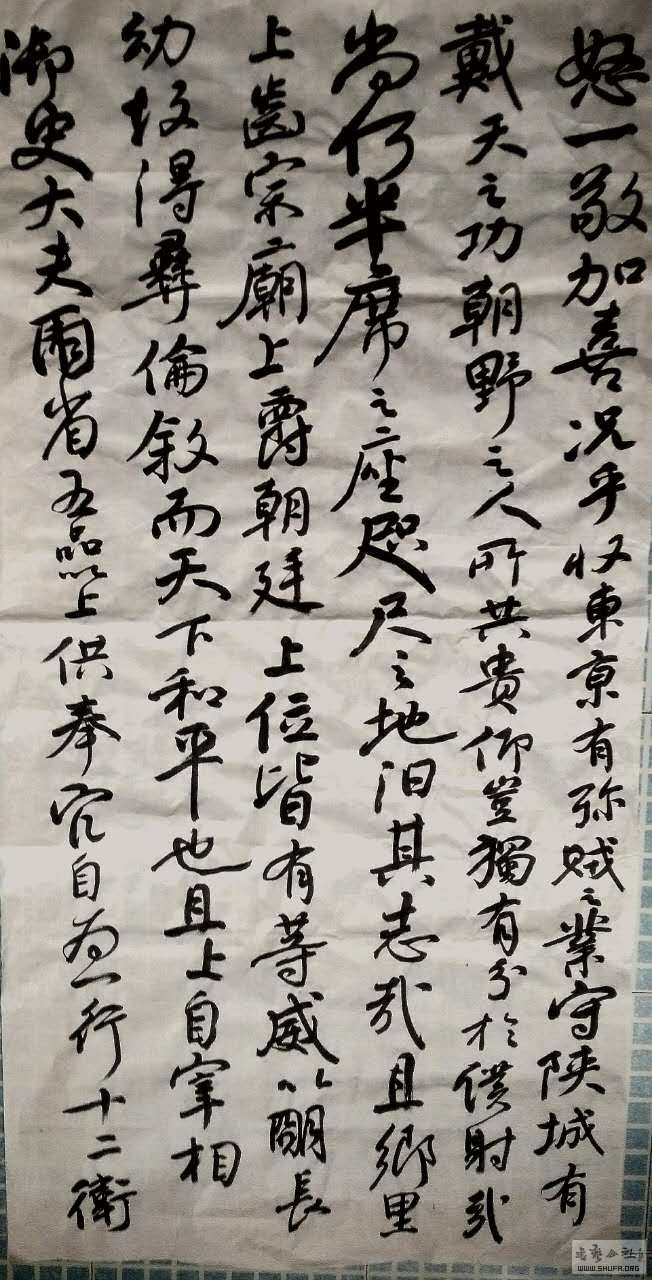 怒一敬加喜況乎收東京有弥賊之業守陝城有
戴天之功朝野之人所共貴仰豈獨有分於僕射哉
尚何半席之座咫尺之地汩其志哉且鄉里
上齒宗廟上爵朝廷上位皆有等威以明長
幼故得彝倫敘而天下和平也且上自宰相
御史大夫兩省五品以上供奉官自為一行十二衛
书艺公社
WWW.SHUFA.ORG